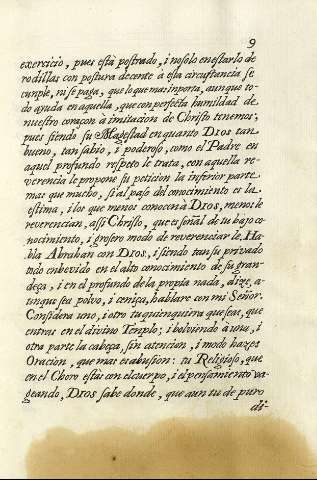 9
exercicio, pues està postrado, i no solo en estarlo de
rodillas con postura decente à esta circustancia se
cunple, ni se paga, que lo que mas inporta, aunque to-
do ayuda en aquella, que con perfecta humildad de
nuestro coraçon à imitacion de Christo tenemos;
pues siendo su Magestad en quanto DIOS tan
bueno, tan sabio, i poderoso, como el Padre en
aquel profundo respeto le trata, con aquella re-
verencia le propone su peticion la inferior parte
mas que mucho, si al paso del conocimiento es la
estima, i los que menos conocen à DIOS, menos le
reverencian, assi Christo, que es señal de tu bajo co-
nocimiento, i grosero modo de reverenciarle. Ha-
bla Abrahan con DIOS, i siendo tan su privado
todo enbevido en el alto conocimiento de su gran-
deça, i en el profundo de la propia nada, dize, a-
unque sea polvo, i ceniça, hablare con mi Señor.
Considera uno, i otro tu quienquiera que seas, que
entres en el divino Templo; i bolviendo à una, i
otra parte la cabeça, sin atencion, i modo hazes
Oracion, que mas es abusion: tu Religioso, que
en el Choro estàs con el cuerpo, i el pensamiento va-
geando, DIOS sabe donde, que aun tu de puro
di-